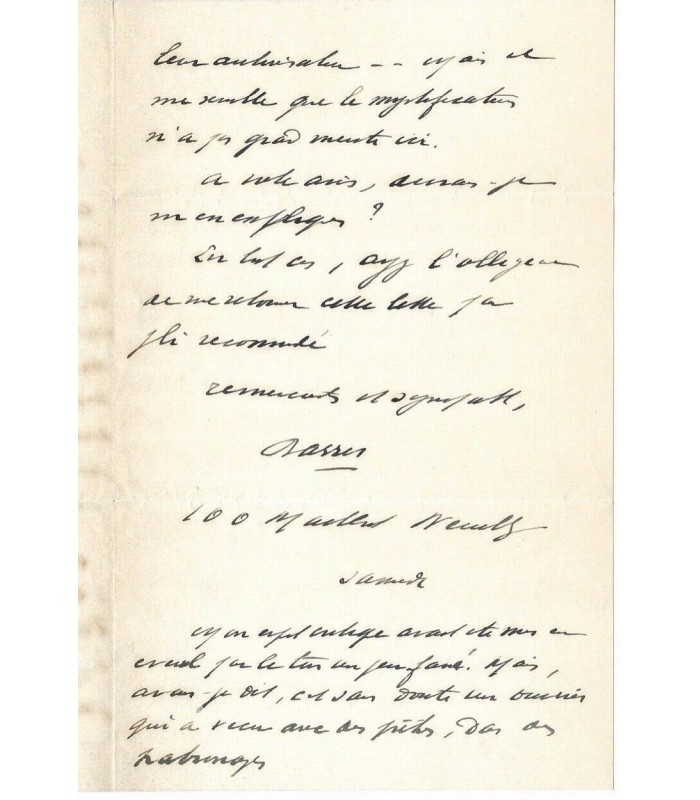 leur autorisation -- Mais il
me semble que le mystificateur
n'a pas grand mérite ici.
A votre avis, devrais-je
m'en expliquer ?
En tout cas, ayez l'obligeance
de me retourner cette lettre par
pli recommandé
remerciements et sympathie,
Barrès
100 Maillot Neuilly
samedi
Mon esprit critique avait été mis en
éveil par le ton un peu fané. Mais,
avais-je dit, c'est sans doute un ouvrier
qui a vécu avec des prêtres, dans des
patronages